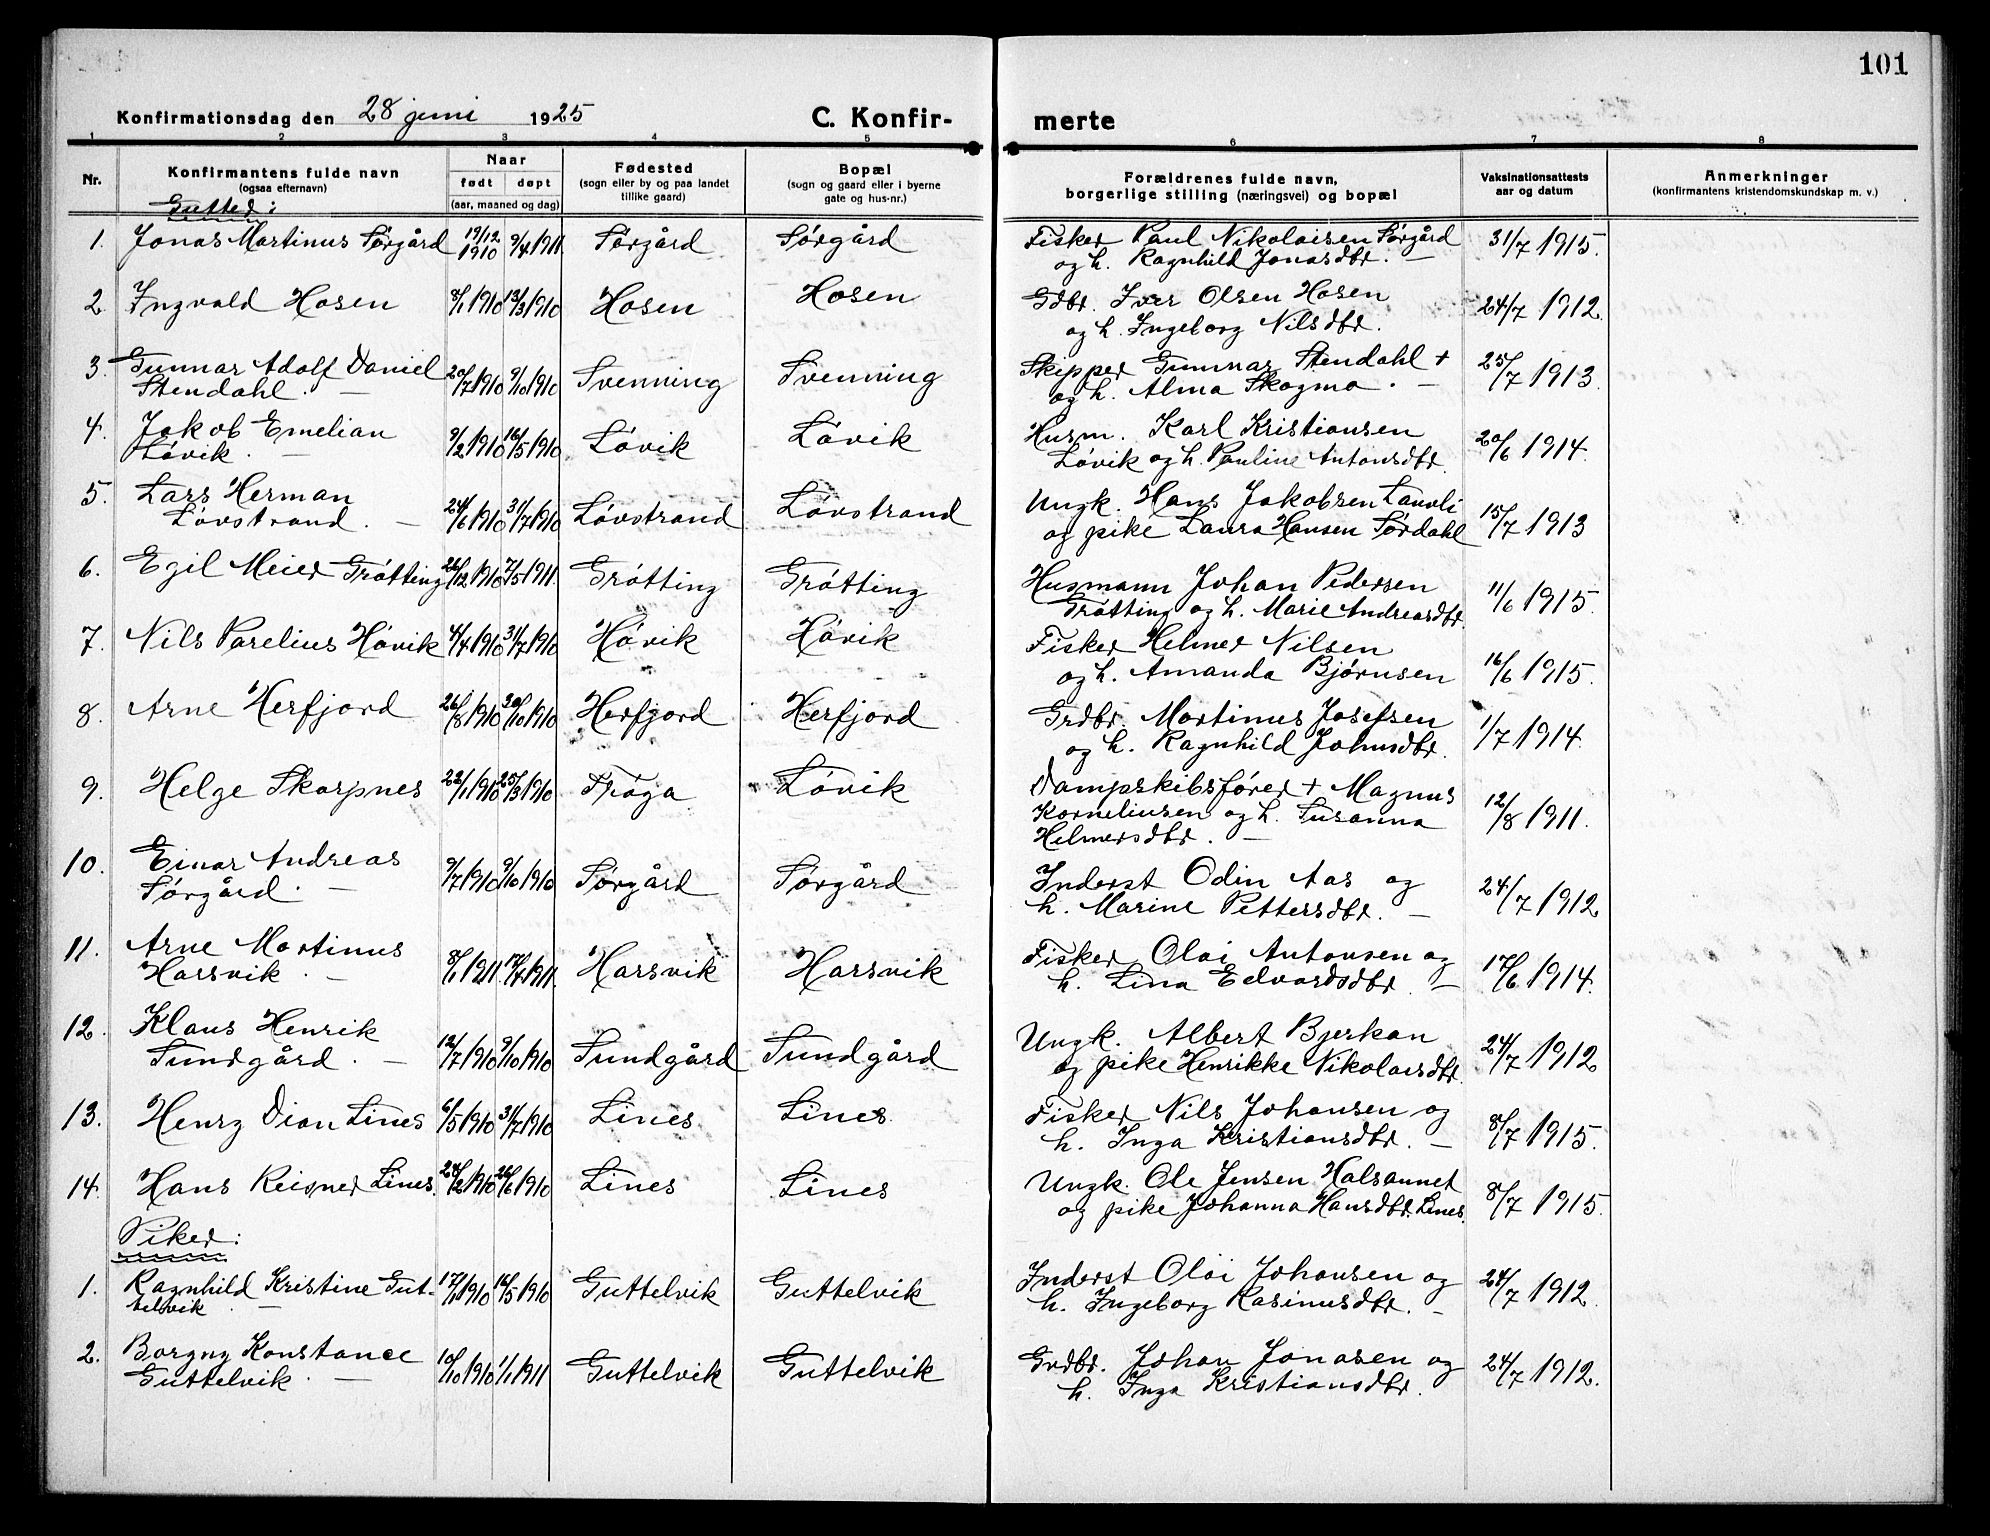 101
Konfirmationsdag den 28 juni 1925 C. Konfir- merte
1 2 3 4 5 6 7 8
Nr.
Konfirmantens fulde navn
(ogsaa efternavn)
Naar
født døpt
(aar, maaned og dag)
Fødested
(sogn eller by og paa landet
tillike gaard)
Bopæl
(sogn og gaard eller i byerne
gate og hus-nr.)
Forældrenes fulde navn,
borgerlige stilling (næringsvei) og bopæl
Vaksinationsattests
aar og datum
Anmerkninger
(konfirmantens kristendomskundskap m. v.)
Gutter:
1. Jonas Martinus Sørgård 19/12 1910 9/4 1911. Sørgård Sørgård Fisker Paul Nikolaisen Sørgård
og h. Ragnhild Jonasdtr. — 31/7 1915.
2. Ingvald Hosen 8/1 1910 13/3 1910 Hosen Hosen Gdbr. Iver Olsen Hosen
og h. Ingeborg Nilsdtr. 24/7 1912.
3. Gunnar Adolf Daniel
Stendahl. — 20/7 1910 9/10 1910 Svenning Svenning Skipper Gunnar Stendahl +
og h. Alma Skogmo. — 25/7 1913.
4. Jakob Emelian
Løvik. — 9/2 1910 16/5 1910 Løvik Løvik Husm. Karl Kristiansen
Løvik og h. Pauline Antonsdtr. 20/6 1914.
5. Lars Herman
Løvstrand. — 24/6 1910 31/7 1910 Løvstrand Løvstrand Ungk. Hans Jakobsen
og pike Laura Hansen Sørdahl 15/7 1913
6. Egil Meier Grøtting 26/12 1910 7/5 1911. Grøtting Grøtting Husmann Johan Pedersen
Grøtting og h. Marie Andreasdtr. 11/6 1915.
7. Nils Parelius Høvik 4/4 1910 31/7 1910 Høvik Høvik Fisker Helmer Nilsen
og h. Amanda Bjørnsen 16/6 1915.
8. Arne Herfjord 26/8 1910 30/10 1910 Herfjord Herfjord Grdbr. Martinus Josefsen
og h. Ragnhild Johnsdtr. 1/7 1914.
9. Helge Skarpnes 22/1 1910 25/3 1910 Løvik Dampskibsfører + Magnus
Korneliusen og h. Susanna
Helmersdtr. — 12/8 1911.
10. Einar Andreas
Sørgård. — 9/7 1910 9/10 1910 Sørgård Sørgård Inderst Odin Aas og
h. Marine Pettersdtr. — 24/7 1912
11. Arne Martinus
Harsvik. — 8/1 1911. 17/4 1911. Harsvik Harsvik Fisker Olai Antonsen og
h. Lina Edvardsdtr. — 17/6 1914.
12. Klaus Henrik
Sundgård. — 12/7 1910 9/10 1910 Sundgård Sundgård Ungk. Albert Bjerkan
og pike Henrikke Nikolaisdtr. 24/7 1912
13. Henry Dian Lines 6/5 1910 31/7 1910 Lines Lines Fisker Nils Johansen og
h. Inga Kristiansdtr. — 8/7 1915.
14. Hans Reisner Lines. 24/2 1910 26/6 1910 Lines Lines Ungk. Ole Jensen Halsannet
og pike Johanna Hansdtr. Lines. 8/7 1915.
Piker:
1. Ragnhild Kristine Gut-
telvik. — 17/1 1910 16/5 1910 Guttelvik Guttelvik Inderst Olai Johansen og
h. Ingeborg Rasinusdtr. — 24/7 1912.
2. Borgny Konstance
Guttelvik. — 10/10 1910 1/1 1911 Guttelvik Guttelvik Grdbr. Johan Jonasen og
h. Inga Kristiansdtr. 24/7 1912.